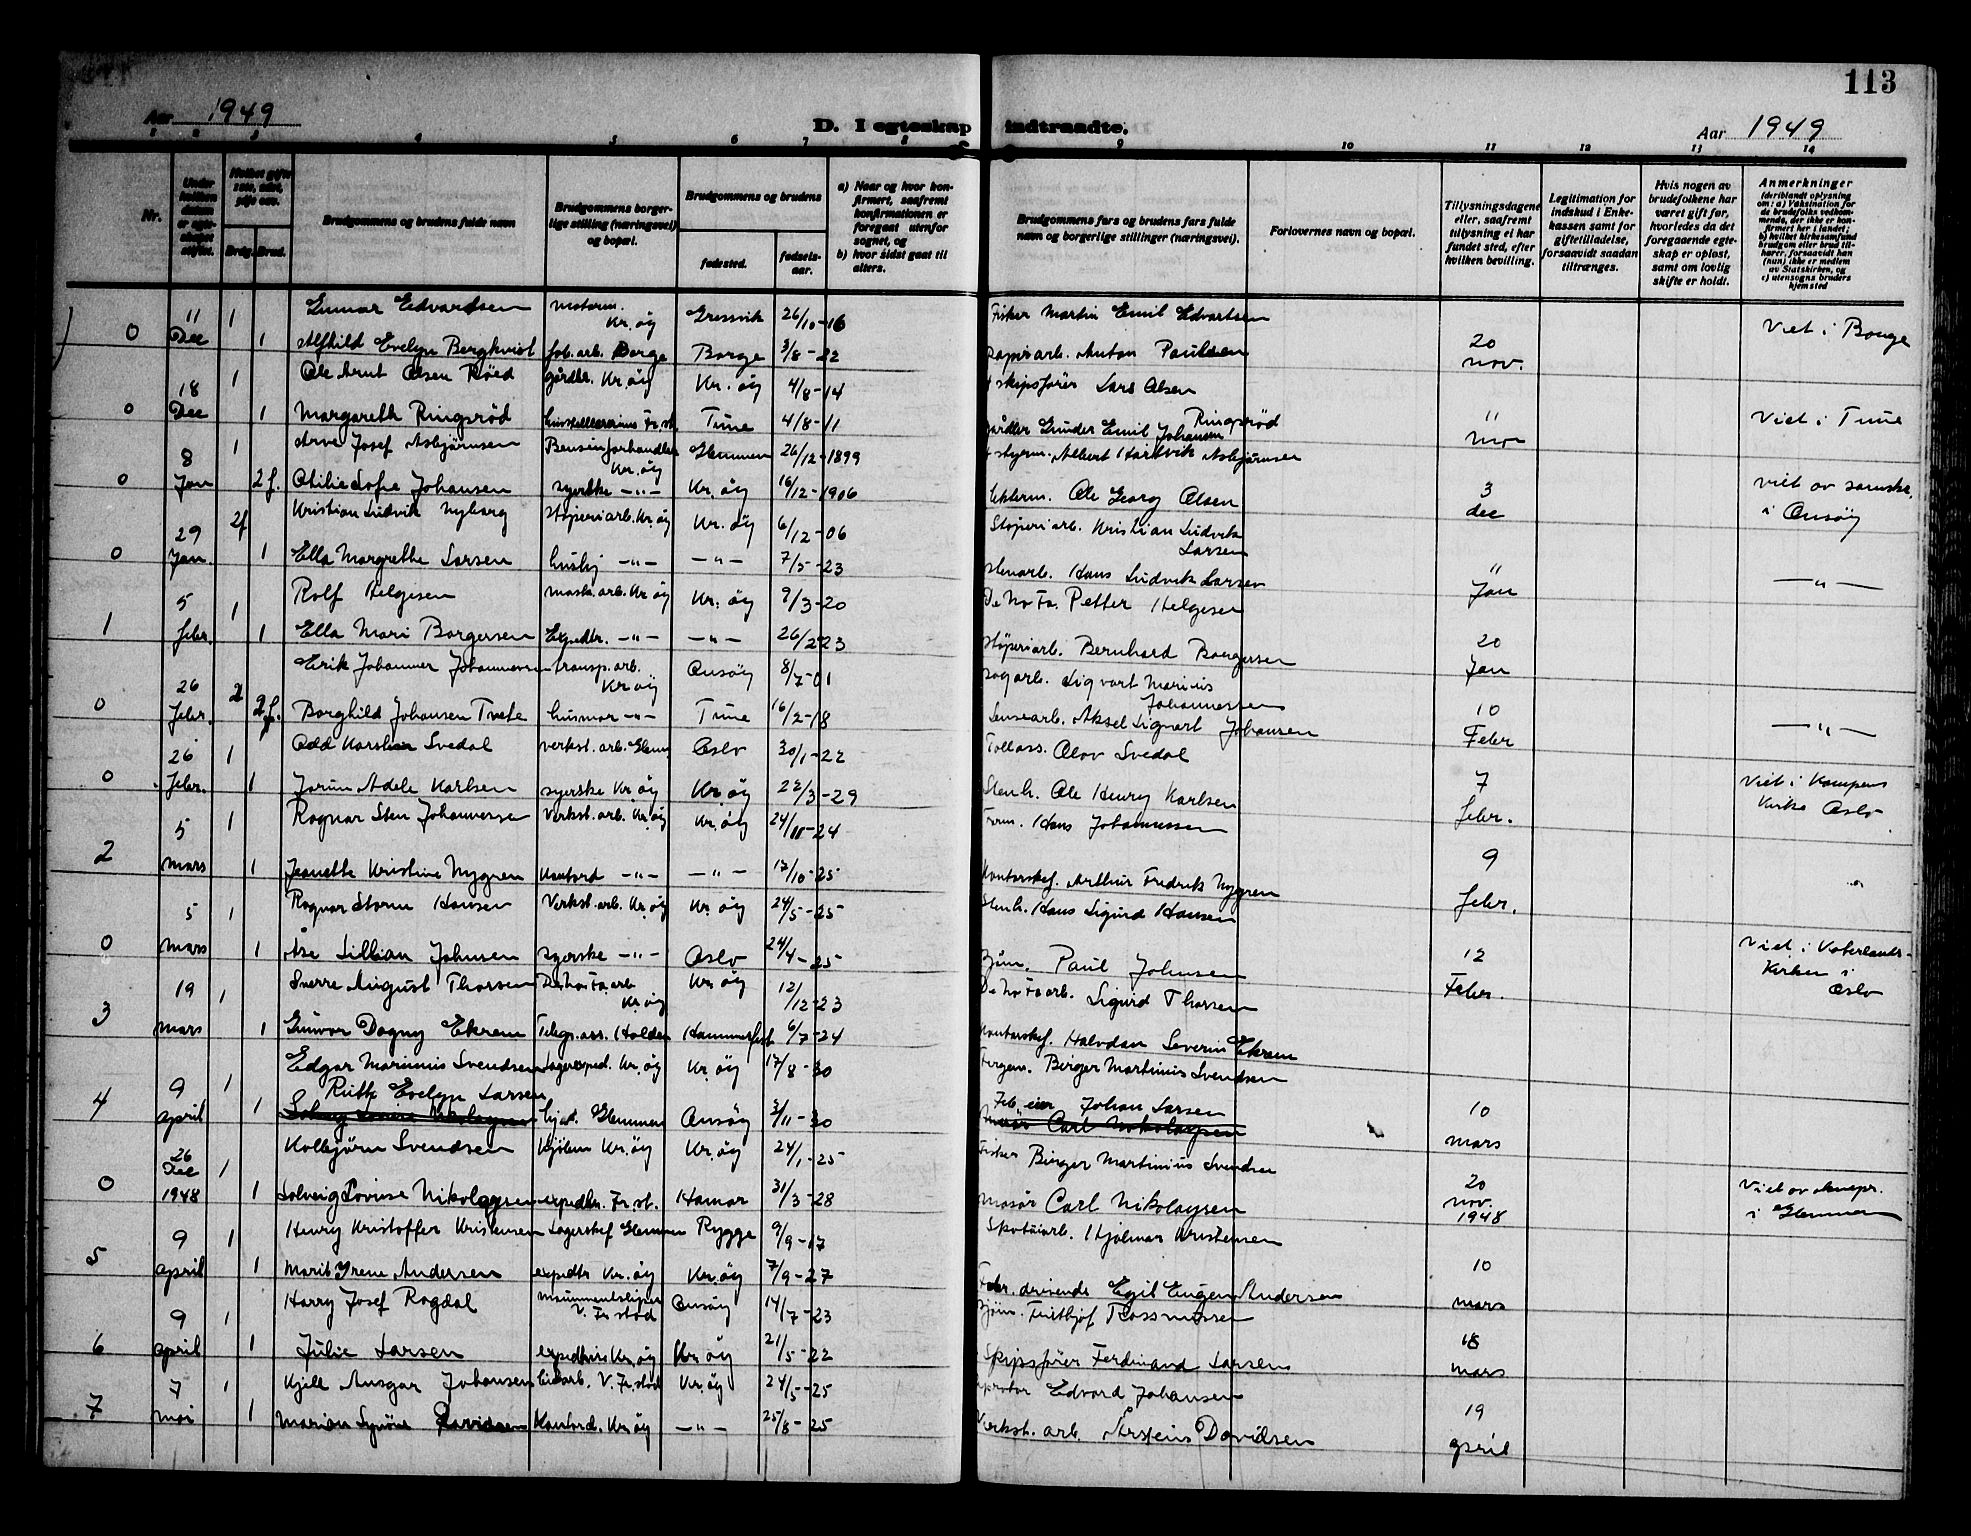 113
Aar 1949
D. I egteskap indtraadte.
Aar 1949
1 2 3 4 5 6 7 8 9 10 11 12 13 14
Nr.
Brudg. Brud.
Brudgommens og brudens fulde navn
Brudgommens borger-
lige stilling (næringsvei)
og bopæl.
Brudgommens og brudens
fødested.
fødsels-
aar.
a) Naar og hvor kon-
firmert, saafremt
konfirmationen er
foregaat utenfor
sognet, og
b) hvor sidst gaat til
alters.
Brudgommens fars og brudens fars fulde
navn og borgerlige stillinger (næringsvei).
Forlovernes navn og bopæl.
Tillysningsdagene
eller, saafremt
tillysning ei har
fundet sted, efter
hvilken bevilling.
Legitimation for
indskud i Enke-
kassen samt for
giftetilladelse,
forsaavidt saadan
tiltrænges.
Hvis nogen av
brudefolkene har
været gift før,
hvorledes da det
foregaaende egte-
skap er opløst,
samt om lovlig
skifte er holdt.
Anmerkninger
(deriblandt oplysning
om: a) Vaksination for
de brudefolks vedkom-
mende, der ikke er kon-
firmert her i landet;
b) hvilket kirkesamfund
brudgom eller brud til-
hører, forsaavidt han
(hun) ikke er medlem
av Statskirken, og
c) utensogns bruders
hjemsted
0 11 Dec 1 Gunnar Edvardsen Kr. øy Gressvik 26/10-16 Fisker Martin Emil Edvartsen
1 Alfhild Evelyn Bergkvist fab. arb. Borge Borge 3/8-22 papirarb. Anton Paulsen 20 nov. Viet i Borge
0 18 Dec 1 Ole Arnt Olsen Røed gårdbr. Kr. øy Kr. øy 4/8-14 skipsfører Lars Olsen
1 Margareth Ringsrød Fr.st. Tune 4/8-11 gårdbr Gunder Emil Johansen Ringsrød 11 nov Viet i Tune
0 8 Jan 1 Arne Josef Asbjørnsen Bensinforhandler Kr. øy Glemmen 26/12-1899 styrm. Albert Hartvik Asbjørnsen
2 f. Otilie Sofie Johansen syerske -"- Kr. øy 16/12-1906 Ole Georg Olsen 3 dec viet av sorenskr. i Onsøy
0 29 Jan. 2f Kristian Ludvik Nyborg støperiarb. Kr. øy Kr. øy 6/12-06 Støperiarb. Kristian Ludvik Larsen
1 Ella Margrethe Larsen -"- -"- 7/5-23 stenarb. Hans Ludvik Larsen 11 Jan -"-
1 5 febr. 1 Rolf Helgesen mask. arb. Kr. øy Kr. øy 9/3-20 De No Fa. Petter Helgesen
1 Ella Mari Borgersen Expedtr. -"- -"- 26/2-23 støperiarb. Bernhard Borgersen 20 Jan
0 26 febr. 2 Erik Johannes Johannessen transp. arb. Kr øy Onsøy 8/7-01 sagarb. Sigvart Marinius Johannessen
2 f. Borghild Johansen Tvete husmor -"- Tune 16/2-18 Aksel Sigvart Johansen 10 Febr -"-
0 26 febr. 1 Odd Karsten Svedal verkst. arb. Glemm. Oslo 30/1-22 Tollass. Olav Svedal
1 Jorun Adele Karlsen syerske Kr. øy Kr. øy 22/3-29 Stenh. Ole Henry Karlsen 7 febr. Viet i Kampens Kirke Oslo.
2 5 mars 1 Ragnar Sten Johannessen Verkst. arb. Kr. øy Kr. øy 24/11-24 Form. Hans Johannessen
1 Jeanette Kristine Nygren Kontord -"- -"- 17/10-25 Kontorskef. Arthur Fredrik Nygren 9 febr.
0 5 mars 1 Ragnar Storm Hansen Verkst. arb. Kr. øy Kr. øy 24/5-25 Stenh. Hans Sigurd Hansen
1 Åse Lillian Johnsen syerske -"- Oslo 24/4-25 Paul Johnsen 12 Febr. Viet i Vaterlands-Kirken i Oslo
3 19 mars 1 Sverre August Thorsen De No Fa. arb Kr. øy Kr. øy 12/12-23 De No Fa arb. Sigurd Thorsen
1 Gunvor Dagny Ekrem Telegr. ass. Halden Hammerfest 6/7-24 Kontorskef. Halvdan Severin Ekrem
4 9 april 1 Edgar Marinius Svendsen Lagerexped. Kr. øy Kr. øy 17/8-30 Birger Martinius Svendsen
1 Ruth Evelyn Larsen Glemmen Onsøy 3/11-30 Johan Larsen 10 mars
Carl Nikolaysen
0 26 Dec 1948 1 Kolbjørn Svendsen Kr. øy Kr. øy 24/1-25 Fisker Birger Martinius Svendsen
1 Solveig Lovise Nikolaysen expedtr. Fr. st. Hamar 31/3-28 masør Carl Nikolaysen 20 nov. 1948 Viet av sknepr. i Glemmen
5 9 april 1 Henry Kristoffer Kristensen Lagerskef Glemmen Rygge 9/9-17 Skotøiarb. Hjalmar Kristensen
1 Marit Irene Andersen expedtr Kr. øy Kr. øy 7/9-27 Egil Eugen Andersen 10 mars
6 9 april 1 Harry Josef Rogdal V. Fr. stad Onsøy 14/7-23 Frithjof Rassmussen
1 Julie Larsen Kr. øy Kr. øy 21/5-22 Skipsfører Ferdinand Larsen 18 mars
7 7 mai 1 Kjell Ansgar Johansen V. Fr. stad Kr. øy 24/5-25 Edvard Johansen
1 Marian Synøve Davidsen Kontord. Kr. øy -"- 25/8-25 Verkst. arb. Davidsen 19 april